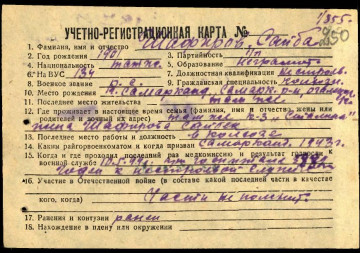 1355.
УЧЕТНО-РЕГИСТРАЦИОННАЯ КАРТА № 350
1. Фамилия, имя и отчество Шафиков Сайба
2. Год рождения 1901 3. Партийность б/п
4. Национальность 5. Образование неграмот.
6. На ВУС 134 7. Должностная квалификация
8. Военное звание 9. Гражданская специальность
10. Место рождения г. Самарканд, Самарк. р-н,
11. Последнее место жительства там же
12. Где проживает в настоящее время семья (фамилия, имя и отчество жены или
родителей и точный их адрес) там же к-з
жена Шафикова
13. Последнее место работы и должность колхозе
14. Каким райвоенкоматом призван Самаркандск. 1943 г.
15. Когда и где проходил последний раз медкомиссию и результат годности к
военной службе 10.5.44 г.
годен к строевой службе
16. Участие в Отечественной войне (в составе какой последней части в качестве
кого, когда) Части не помнит.
17. Ранения и контузии ранен
18. Нахождение в плену или окружении